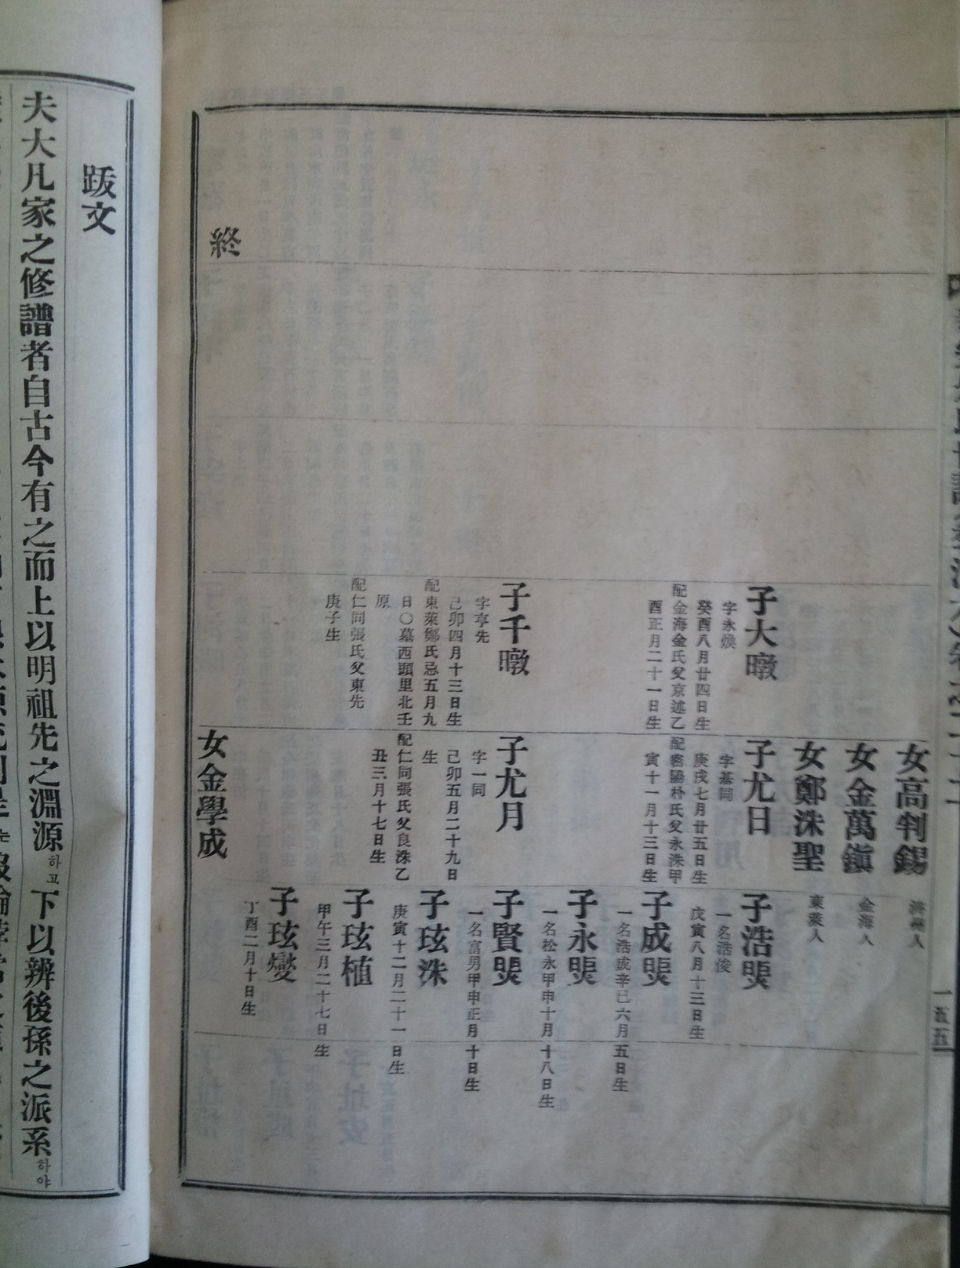 子大暾
字永煥
癸酉八月廿四日生
配金海金氏父京述乙
酉正月二十一日生
子千暾
字亨先
己卯四月十三日生
配東萊鄭氏忌五月九
日〇墓西頭里北壬
原
配仁同張氏父東先
庚子生
女高判錫
濟州人
女金萬鎭
金海人
女鄭洙聖
東萊人
子尤日
字基同
庚戌七月廿五日生
配密陽朴氏父永洙甲
寅十一月十三日生
子尤月
字一同
己卯五月二十九日
生
配仁同張氏父良洙乙
丑三月十七日生
女金學成
子浩煚
一名浩俊
戊寅八月十三日生
子成煚
一名浩成辛巳六月五日生
子永煚
一名松永甲申十月十八日生
子賢煚
一名富男甲申正月十日生
子玹洙
庚寅十二月二十一日生
子玹植
甲午三月二十七日生
子玹燮
丁酉二月十日生
終
一五五
跋文
夫大凡家之修譜者自古今有之而上以明祖先之淵源하고下以辨後孫之派系하야